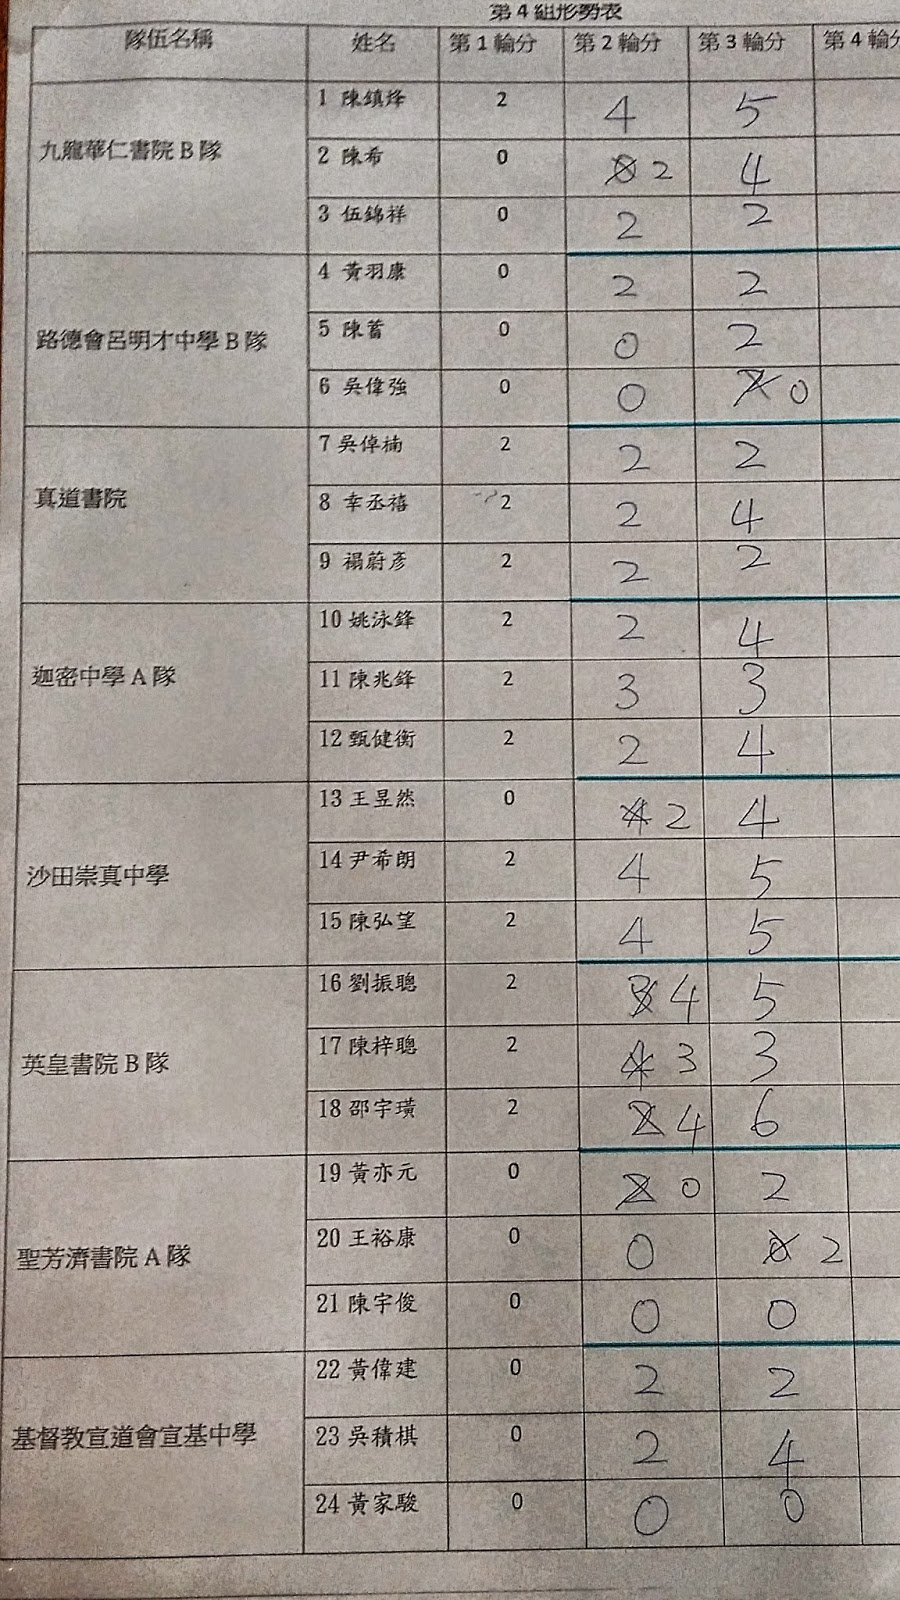 第4組形勢表
隊伍名稱 姓名 第1輪分 第2輪分 第3輪分 第4輪分
九龍華仁書院B隊
1 陳鎮烽 2 4 5
2 陳希 0 2 4
3 伍錦祥 0 2 2
路德會呂明才中學B隊
4 黃羽康 0 2 2
5 陳蓄 0 0 2
6 吳偉強 0 0 0
真道書院
7 吳倬楠 2 2 2
8 幸丞禧 2 2 4
9 禤蔚彥 2 2 2
迦密中學A隊
10 姚泳鋒 2 2 4
11 陳兆鋒 2 3 3
12 甄健衡 2 2 4
沙田崇真中學
13 王昱然 0 2 4
14 尹希朗 2 4 5
15 陳弘望 2 4 5
英皇書院B隊
16 劉振聰 2 4 5
17 陳梓聰 2 3 3
18 邵宇璜 2 4 6
聖芳濟書院A隊
19 黃亦元 0 0 2
20 王裕康 0 0 2
21 陳宇俊 0 0 0
基督教宣道會宣基中學
22 黃偉建 0 2 2
23 吳積棋 0 2 4
24 黃家駿 0 0 0